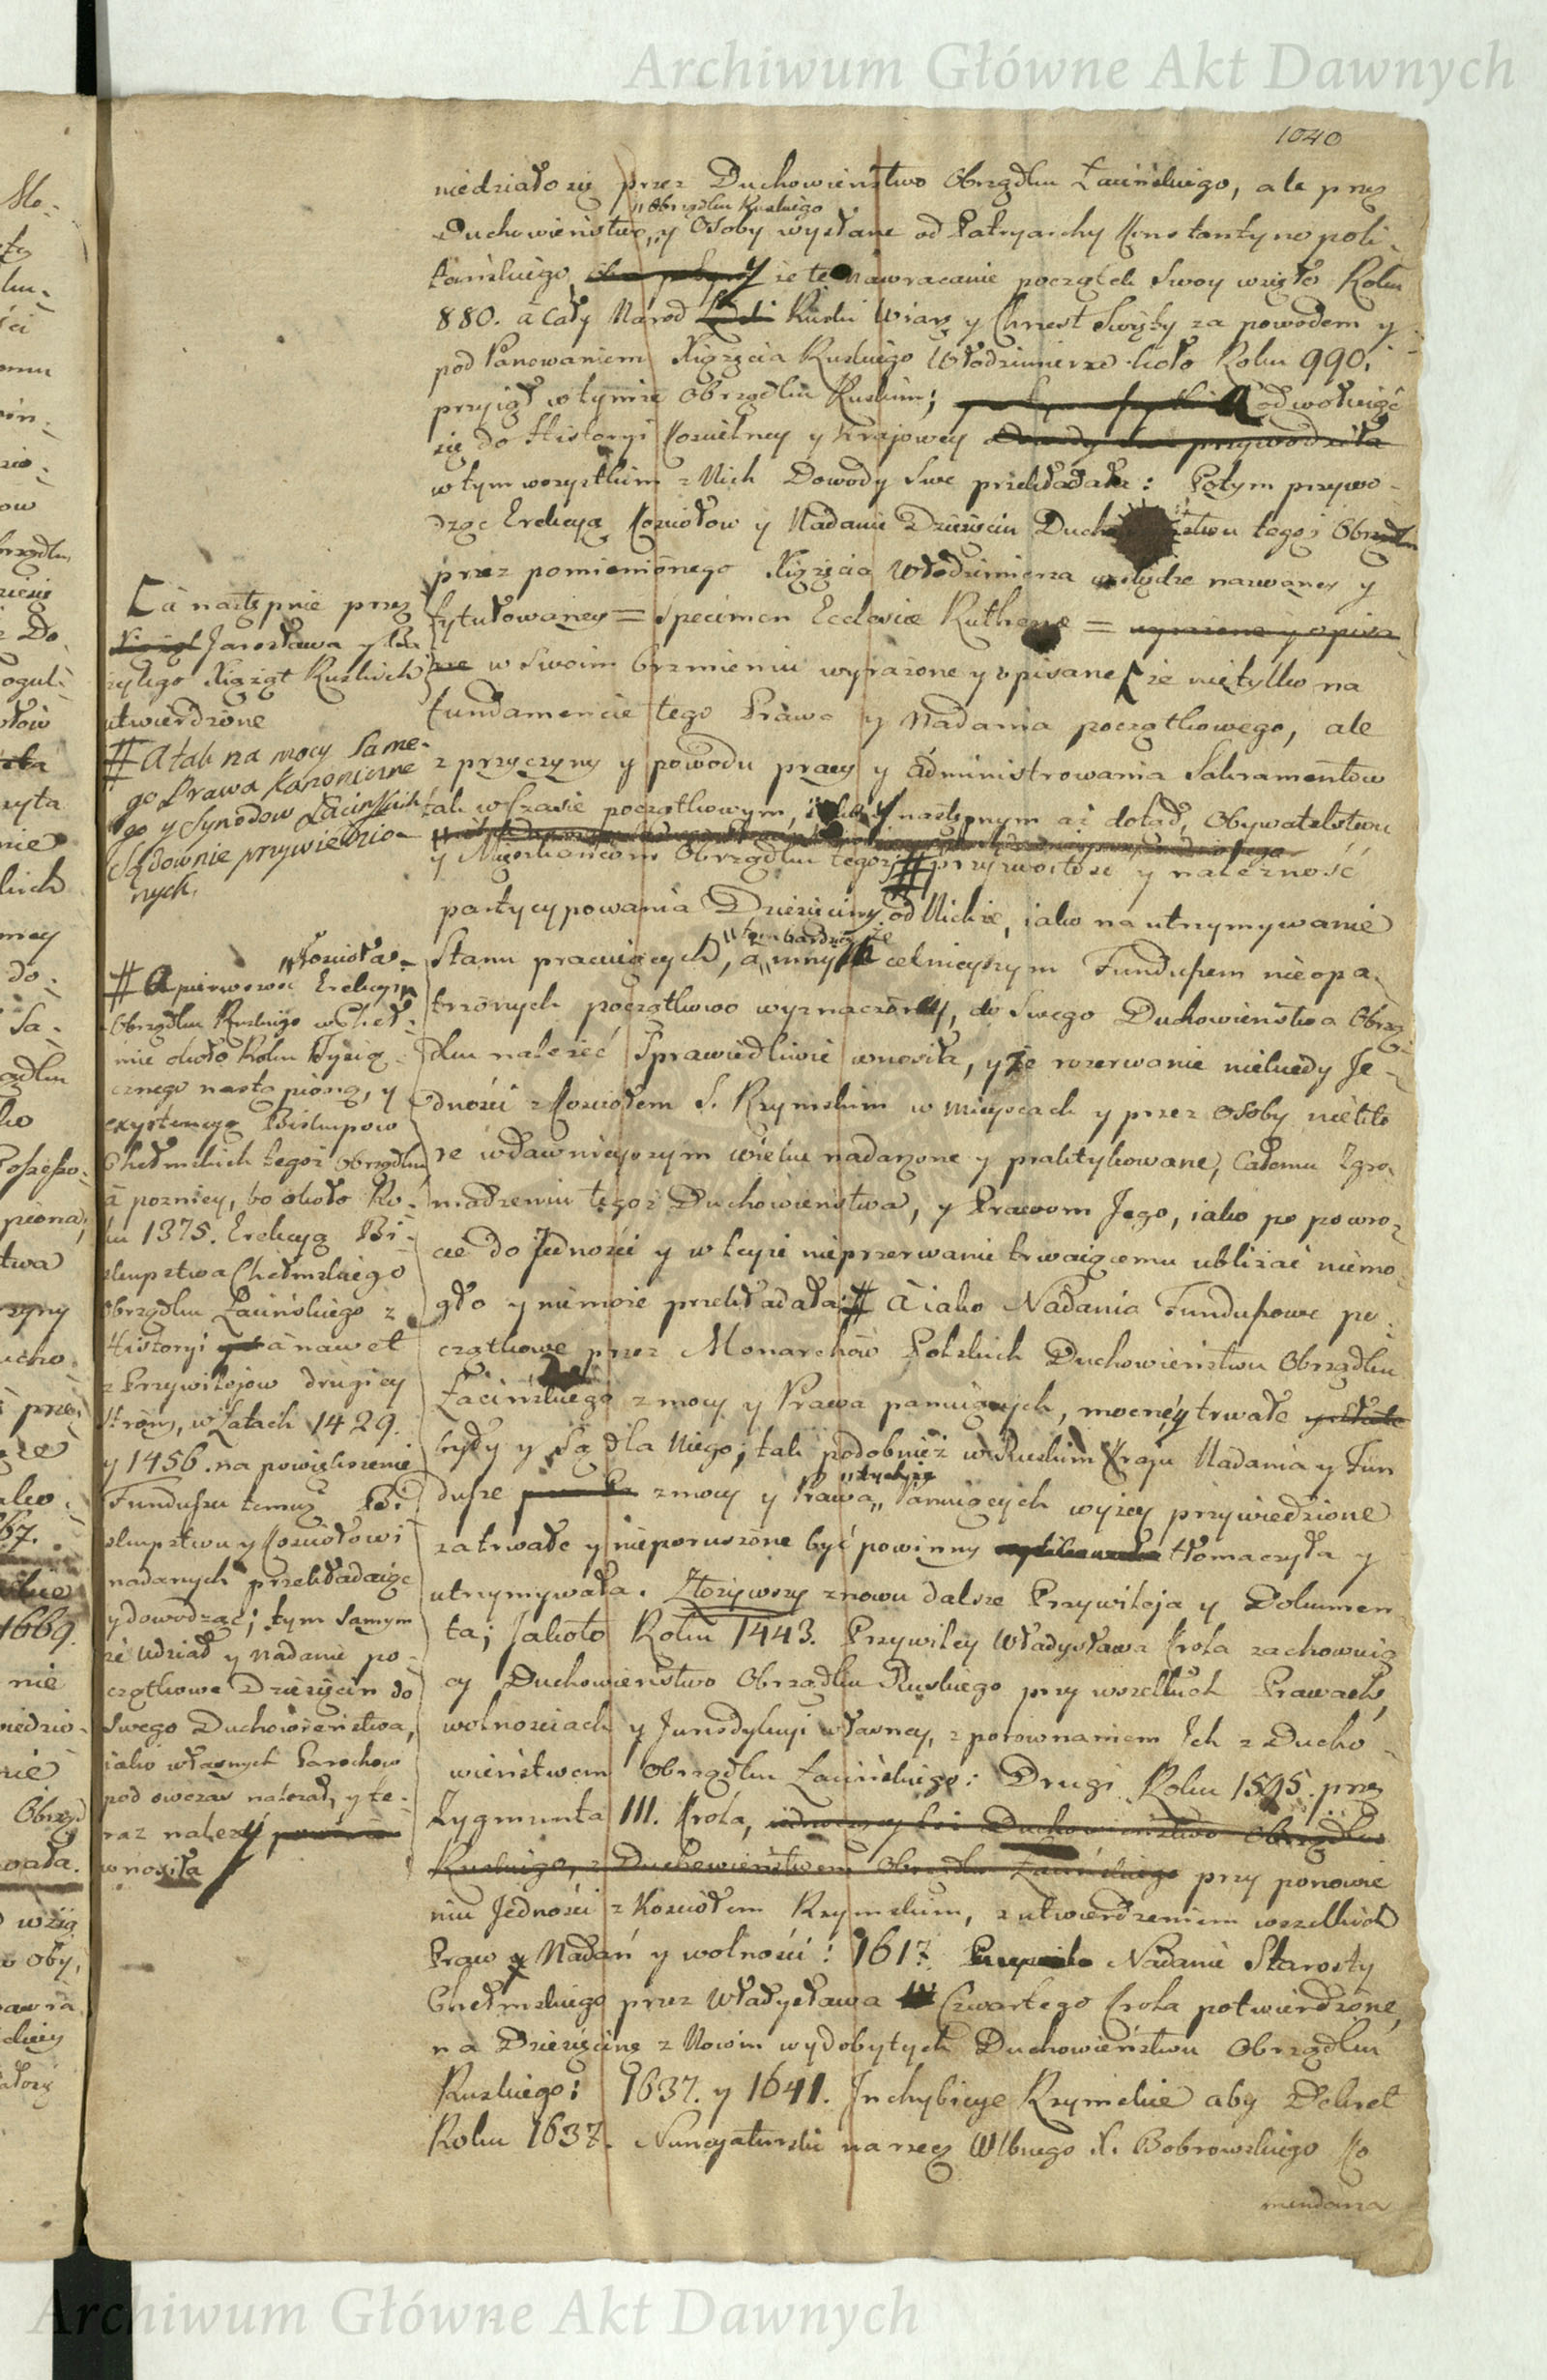 Archiwum Główne Akt Dawnych
1040
niedziało się przez Duchowieństwo Obrządku Łacińskiego, ale przez
„Obrządku Ruskiego
Duchowieństwo „y Osoby wysłane od Patryarchy Konstantynopoli-
tańskiego, y że te Nawracanie początek Swoy wzięło Roku
880. a cały Narod Ruski Wiarę y Chrzest Swięty za powodem y
pod Panowaniem Xiążęcia Ruskiego Włodzimierza około Roku 990.
przyiął w tymże Obrządku Ruskim; a odwołuiąc
się do Historyi Kościelney y Krajowey przywodziła
w tym wszystkim z Nich Dowody Swe przekładała: Potym przywo-
dząc Erekcyą Kościołow y Nadanie Dziesięcin tegoż Obrządku
przez pomienionego Xiążęcia Włodzimierza w xiędze nazwaney y
tytułowaney = Specimen Ecclesiæ Ruthenæ = wyrażone y opisa-
ne w Swoim brzmieniu wyrażone y opisane [ że nietylko na
fundamencie tego Prawa y Nadania początkowego, ale
z przyczyny y powodu pracy y administrowania Sakramentow
tak w Czasie początkowym, y następnym aż dotąd, Obywatelstwu
y Mieszkańcom Obrządku tegoż # przyzwoitość y należność
partycypowania Dziesięciny od Nichże, iako na utrzymywanie
„tym bardziey że
Stanu pracuiących, a „innym celnieyszym Funduszem nieopa-
trzonych początkowo wyznaczoney, do Swego Duchowieństwa Obrzą-
dku należeć Sprawiedliwie wnosiła, y że rozerwanie niekiedy Je-
dności z Kościołem S. Rzymskim w mieyscach y przez Osoby niektó-
re w dawnieyszym wieku nadarzone y praktykowane, całemu Zgro-
madzeniu tegoż Duchowieństwa, y Prawom Jego, iako po powro-
cie do Jedności y w teyże nieprzerwanie trwaiącemu ubliżać niemo-
gło y niemoże przekładała: # A iako Nadania Funduszowe po-
czątkowe przez Monarchów Polskich Duchowieństwu Obrządku
Łacińskiego z mocy y Prawa panuiących, mocne y trwałe y stałe
były y są dla Niego; tak podobnież w Ruskim Kraju Nadania y Fun-
„tychże
dusze z mocy y Prawa „ Panuiących wyżey przywiedzione
za trwałe y nieporuszone być powinny tłomaczyła y
utrzymywała. Złożywszy znowu dalsze Przywileja y Dokumen-
ta; Jakoto Roku 1443. Przywiley Władysława Krola zachowuią-
cy Duchowieństwo Obrządku Ruskiego przy wszelkich Prawach,
wolnościach y Jurisdykcyi własney, z porownaniem Ich z Ducho-
wieństwem Obrządku Łacińskiego: Drugi Roku 1595. przez
Zygmunta III. Krola, Duchowieństwo Obrządku
Ruskiego, z Duchowieństwem Obrządku Łacińskiego przy ponowie-
niu Jedności z Kościołem Rzymskim, z utwierdzeniem wszelkich
Praw y Nadań y wolności: 1617. Nadanie Starosty
Chełmskiego przez Władysława Czwartego Krola potwierdzone,
na Dziesięcinę z Nowin wydobytych Duchowieństwu Obrządku
Ruskiego: 1637. y 1641. Inchybicye Rzymskie aby Dekret
Roku 1637. Nuncyaturski na rzecz Wlbnego X. Bobrowskiego Ko-
mendarza
[ a następnie przez
Xiążąt Jarosława y
Xiążąt Ruskich
utwierdzone
# A tak na mocy same-
go Prawa Kanoniczne-
go y Synodow Łacinskich
Sądownie przywiedzio-
nych.
„Kościoła
# A pierwszość Erekcyi
Obrządku Ruskiego w Cheł-
mie około Roku Tysią-
cznego nastąpioną, y
exystencyą Biskupow
Chełmskich tegoż Obrządku
a pozniey, bo około Ro-
ku 1375. Erekcyą Bi-
skupstwa Chełmskiego
Obrządku Łacińskiego z
Historyi a nawet
z Przywilejow drugiey
strony, w Latach 1429.
y 1456. na powiększenie
Funduszu temuż Bi-
skupstwu y Kościołowi
nadanych przekładaiąc
y dowodząc; tym samym
że Udział y nadanie po-
czątkowe Dziesięcin do
Swego Duchowieństwa,
iako własnych Parochow
pod owczas należał, y te-
raz należy
wnosiła
Archiwum Główne Akt Dawnych